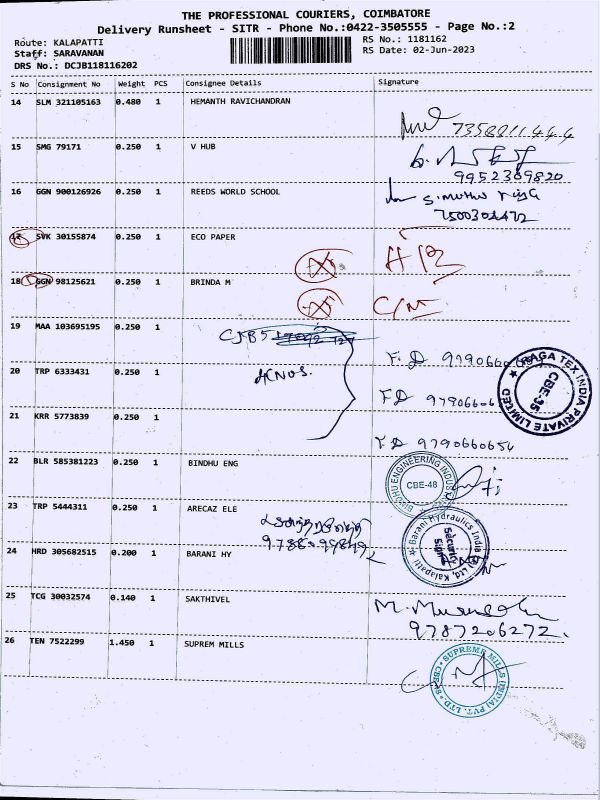 THE PROFESSIONAL COURIERS, COIMBATORE
Delivery Runsheet - SITR - Phone No.:0422-3505555 - Page No.:2
Route: KALAPATTI
Staff: SARAVANAN
DRS No.: DCJB118116202
RS No.: 1181162
RS Date: 02-Jun-2023
S No Consignment No Weight PCS Consignee Details Signature
14 SLM 321105163 0.480 1 HEMANTH RAVICHANDRAN
15 SMG 79171 0.250 1 V HUB
9952309820
16 GGN 900126926 0.250 1 REEDS WORLD SCHOOL
17 SVK 30155874 0.250 1 ECO PAPER
18 GGN 98125621 0.250 1 BRINDA M
C/N
19 MAA 103695195 0.250 1
20 TRP 6333431 0.250 1
21 KRR 5773839 0.250 1
9790660654
RAGA TEX INDIA PRIVATE LIMITED
CBE-35
22 BLR 585381223 0.250 1 BINDHU ENG
BINDHU ENGINEERING
CBE-48
23 TRP 5444311 0.250 1 ARECAZ ELE
24 HRD 305682515 0.200 1 BARANI HY
Barani Hydraulics India Ltd, Kalapatti
25 TCG 30032574 0.140 1 SAKTHIVEL
9787206272.
26 TEN 7522299 1.450 1 SUPREM MILLS
SUPREME MILLS (INDIA) PVT. LTD.